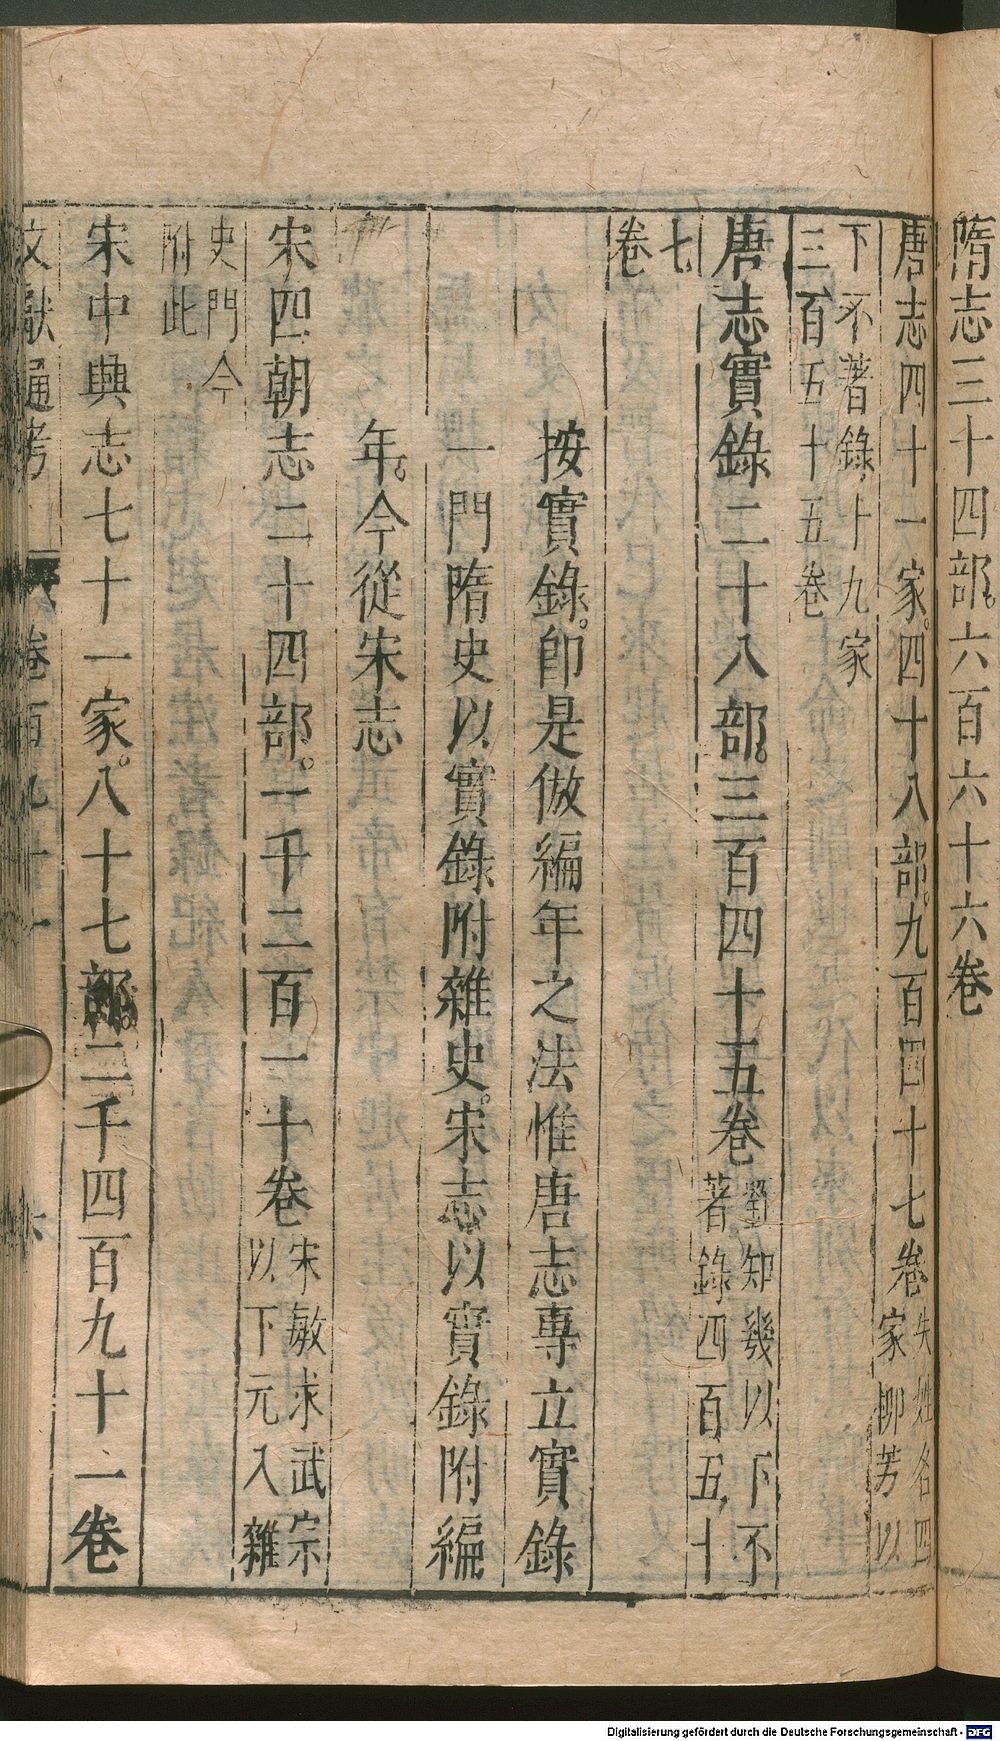 隋志三十四部六百六十六卷
唐志四十一家四十八部九百四十七卷失姓名四家柳芳以
下不著錄十九家三百五十五卷
唐志實錄二十八部三百四十五卷劉知幾以下不著錄四百五十
七卷
按實錄即是倣編年之法惟唐志專立實錄
一門隋史以實錄附雜史宋志以實錄附編
年今從宋志
宋四朝志二十四部一千二百一十卷宋敏求武宗以下元入雜
史門今附此
宋中興志七十一家八十七部二千四百九十一卷
文獻通考 卷百九十一 六
Digitalisierung gefördert durch die Deutsche Forschungsgemeinschaft - DFG